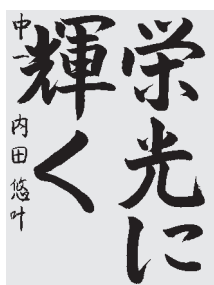 栄光に
輝く
中一 内田悠叶